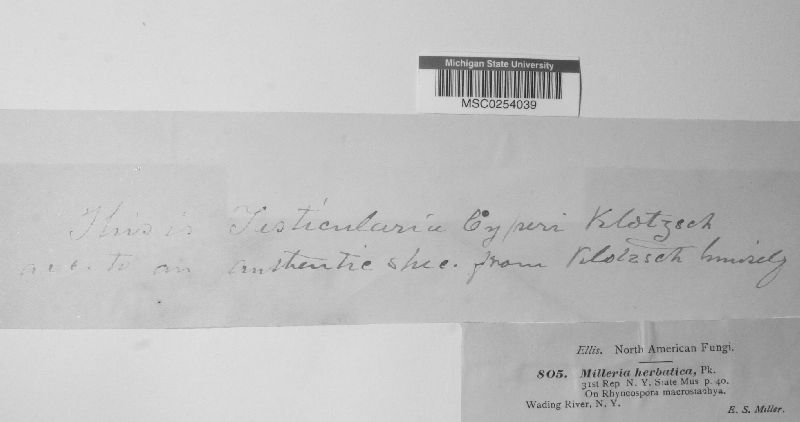 Michigan State University
MSC0254039
This is Testicularia Cyperi Klotzsch
acc. to an authentic spec. from Klotzsch himself
Ellis. North American Fungi.
805. Milleria herbatica, Pk.
31st Rep N. Y. State Mus p. 40.
On Rhyncospora macrostachya.
Wading River, N. Y.
E. S. Miller.